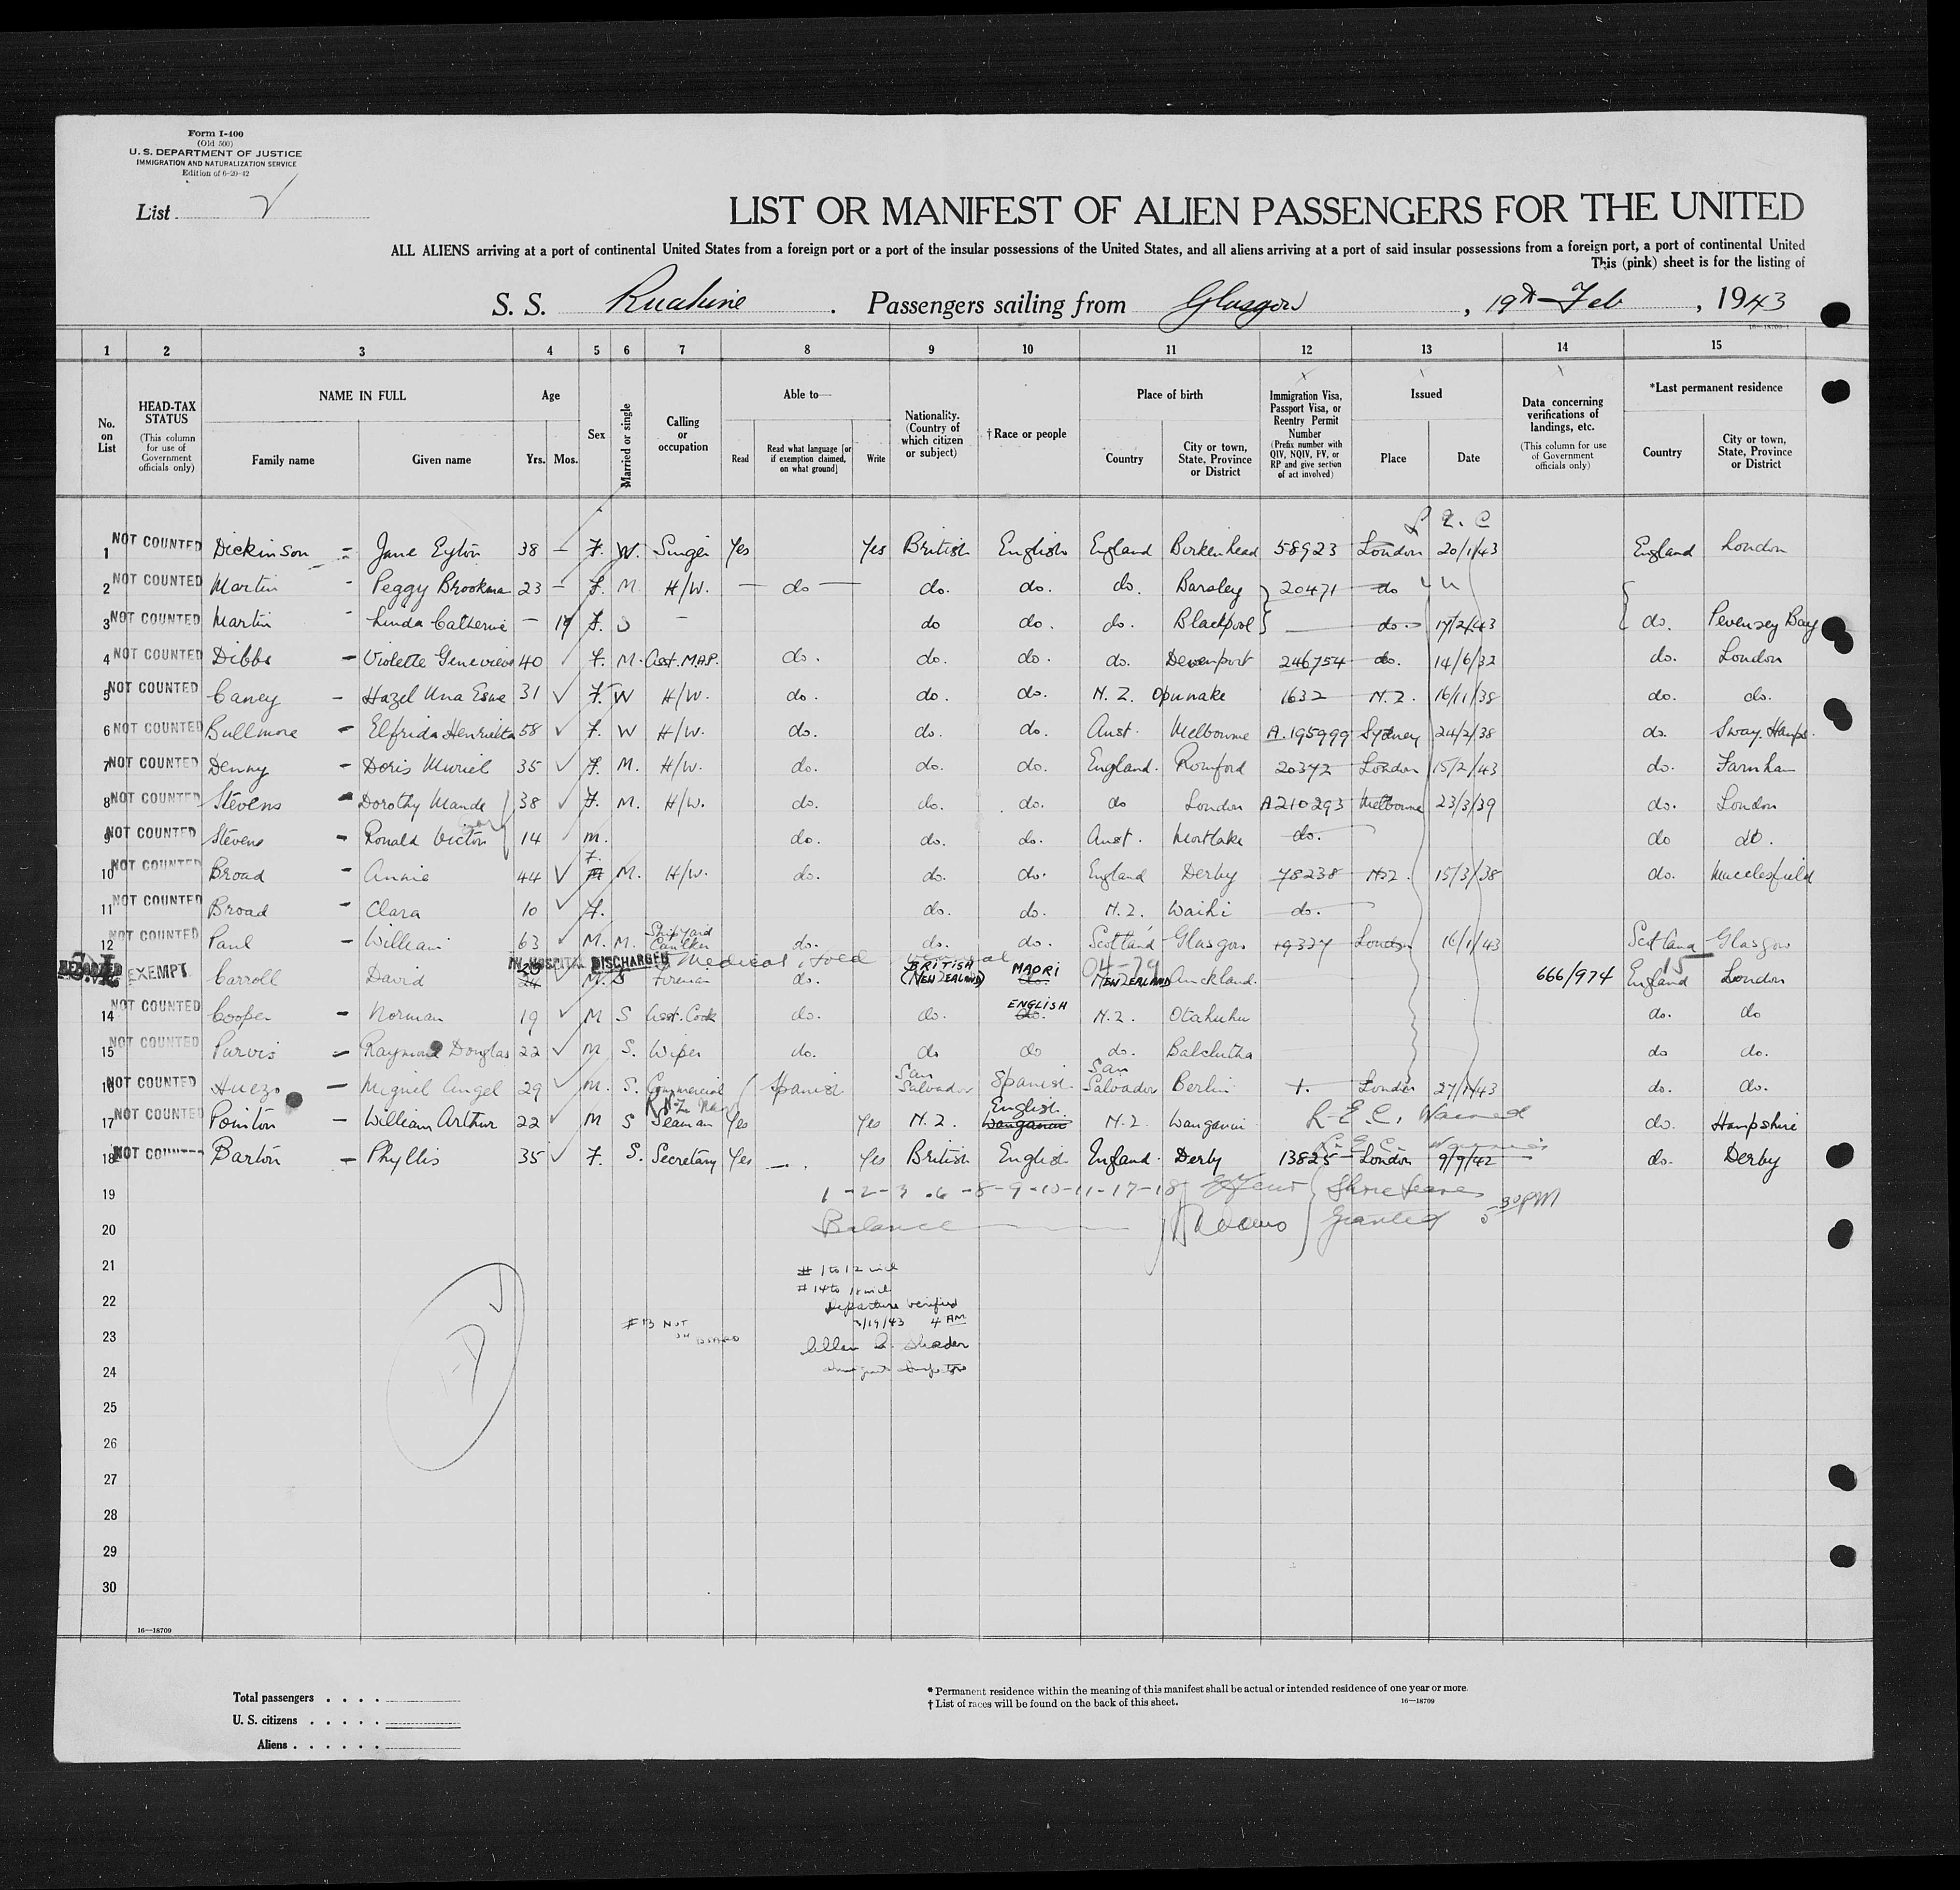 Form I-400
(Old 500)
U. S. DEPARTMENT OF JUSTICE
IMMIGRATION AND NATURALIZATION SERVICE
Edition of 6-20-42
List
LIST OR MANIFEST OF ALIEN PASSENGERS FOR THE UNITED
ALL ALIENS arriving at a port of continental United States from a foreign port or a port of the insular possessions of the United States, and all aliens arriving at a port of said insular possessions from a foreign port, a port of continental United
This (pink) sheet is for the listing of
S. S. Ruahine . Passengers sailing from Glasgow , 19th Feb , 1943
16—18709-1
1 2 3 4 5 6 7 8 9 10 11 12 13 14 15
No. on List
HEAD-TAX STATUS
(This column for use of Government officials only)
NAME IN FULL
Family name Given name
Age
Yrs. Mos.
Sex
Married or single
Calling or occupation
Able to—
Read Read what language [or if exemption claimed, on what ground] Write
Nationality. (Country of which citizen or subject)
† Race or people
Place of birth
Country City or town, State, Province or District
Immigration Visa, Passport Visa, or Reentry Permit Number
(Prefix number with QIV, NQIV, FV, or RP and give section of act involved)
Issued
Place Date
Data concerning verifications of landings, etc.
(This column for use of Government officials only)
*Last permanent residence
Country City or town, State, Province or District
1 NOT COUNTED Dickinson - Jane Eyton 38 - F. W. Singer Yes Yes British English England Birkenhead 58923 London 20/1/43 England London
2 NOT COUNTED Martin - Peggy Brookman 23 - F. M. H/W. — do — do. do. do. Barsley 20471 do
3 NOT COUNTED Martin - Linda Catherine - 19 F. S - do do. do. Blackpool do. 17/2/43 do. Pevensey Bay
4 NOT COUNTED Dibbs - Violette Genevieve 40 F. M. Asst. M.A.P. do. do. do. do. Devonport 246754 do. 14/6/32 do. London
5 NOT COUNTED Caney - Hazel Una Esme 31 F. W H/W. do. do. do. N. Z. Opunake 1632 N. Z. 16/11/38 do. do.
6 NOT COUNTED Bullmore - Elfrida Henrietta 58 F. W H/W. do. do. do. Aust. Melbourne A.195999 Sydney 24/2/38 do. Sway. Hants.
7 NOT COUNTED Denny - Doris Muriel 35 F. M. H/W. do. do. do. England. Romford 20372 London 15/2/43 do. Farnham
8 NOT COUNTED Stevens - Dorothy Maude 38 F. M. H/W. do. do. do. do London A210293 Melbourne 23/3/39 do. London
9 NOT COUNTED Stevens - Ronald Victor 14 M. do. do. do. Aust. Mortlake do. do do.
10 NOT COUNTED Broad - Annie 44 F. M. H/W. do. do. do. England Derby 78238 N.Z. 15/3/38 do. Macclesfield
11 NOT COUNTED Broad - Clara 10 F. do. do. N.Z. Waihi do.
12 NOT COUNTED Paul - William 63 M. M. Shipyard Caulker do. do. do. Scotland Glasgow 19327 London 16/1/43 Scotland Glasgow
IN HOSPITAL DISCHARGED
EXEMPT Carroll David M. S Fireman do. BRITISH (NEW ZEALAND) MAORI NEW ZEALAND Auckland. 666/974 England London
14 NOT COUNTED Cooper - Norman 19 M S Asst. Cook do. do. ENGLISH N.Z. Otahuhu do. do
15 NOT COUNTED Purvis - Raymond Douglas 22 M S. Wiper do. do do do. Balclutha do do.
16 NOT COUNTED Huezo - Miguel Angel 29 M. S. Commercial Spanish San Salvador Spanish San Salvador Berlin London 27/1/43 do. do.
17 NOT COUNTED Pointon - William Arthur 22 M S R.N.Z. Nav Seaman Yes Yes N.Z. English Wanganui N.Z. Wanganui R.E.C. Warned do. Hampshire
18 NOT COUNTED Barton - Phyllis 35 F. S. Secretary Yes — . Yes British English England. Derby 13825 London 9/9/42 do. Derby
19 1-2-3.6-8-9-10-11-17-18 Shore leave
20 Balance Granted 5 30 PM
21 # 1 to 12 incl
22 # 14 to 18 incl
Departure verified
3/19/43 4 AM
23 # 13 NOT ON BOARD
24
25
26
27
28
29
30
16—18709
Total passengers . . . .
U. S. citizens . . . . .
Aliens . . . . . .
* Permanent residence within the meaning of this manifest shall be actual or intended residence of one year or more.
† List of races will be found on the back of this sheet.
16—18709